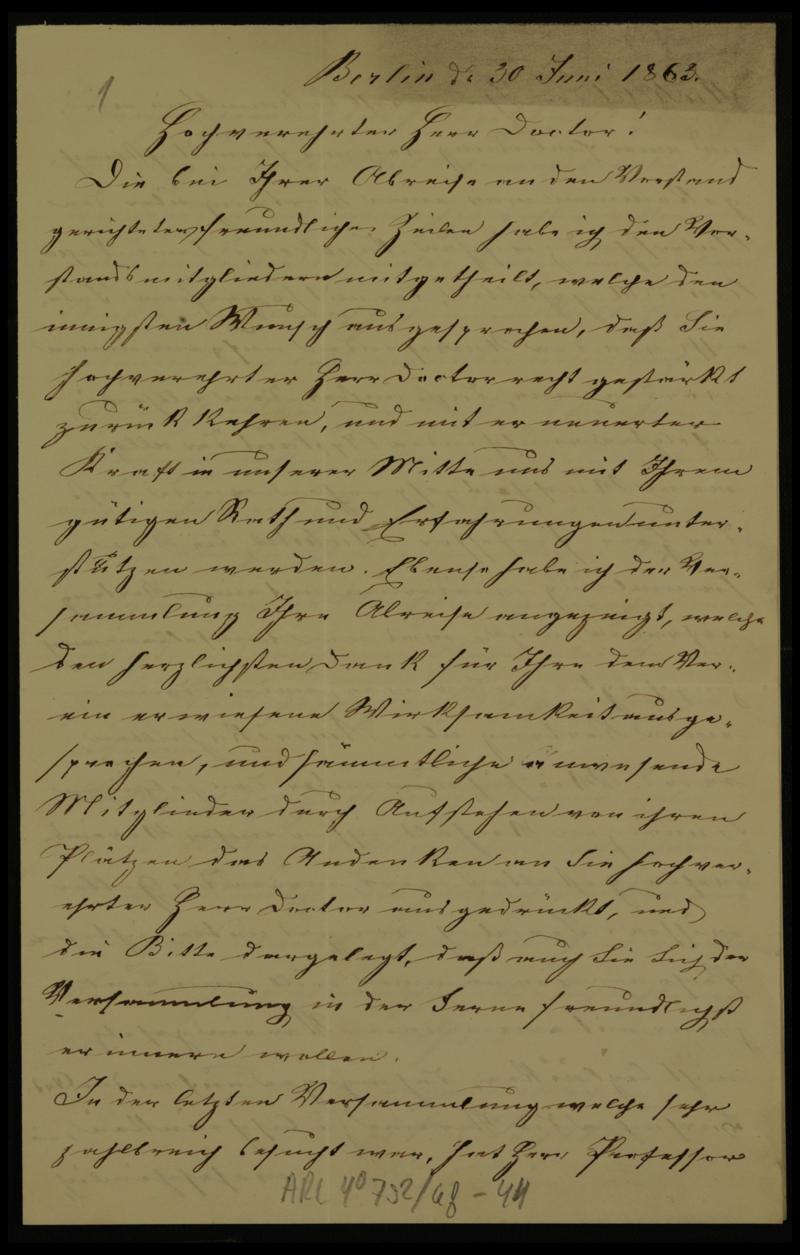 1
Berlin d. 30 Juni 1863.
Hochverehrter Herr Doctor!
Die bei Ihrer Abreise an den Vorstand
gerichteten freundlichen Zeilen habe ich den Vor-
standsmitgliedern mitgetheilt, welche den
innigsten Wunsch ausgesprochen, daß Sie
hochverehrter Herr Doctor recht gestärkt
zurück kehren, und mit erneuerter
Kraft in unserer Mitte uns mit Ihrem
gütigen Rath und Erfahrungen unter-
stützen werden. Ebenso habe ich der Ver-
sammlung Ihre Abreise angezeigt, welche
den herzlichsten Dank für Ihre dem Ver-
ein erwiesene Wirksamkeit ausge-
sprochen, und sämmtliche anwesende
Mitglieder durch Aufstehen von ihren
Plätzen das Andenken an Sie hochver-
ehrter Herr Doctor ausgedrückt, und
die Bitte dargelegt, daß auch Sie Sich der
Versammlung in der Ferne freundlichst
erinnern wollen.
In der letzten Versammlung welche sehr
zahlreich besucht war, hat Herr Professor
ARC 4° 792/G8-44